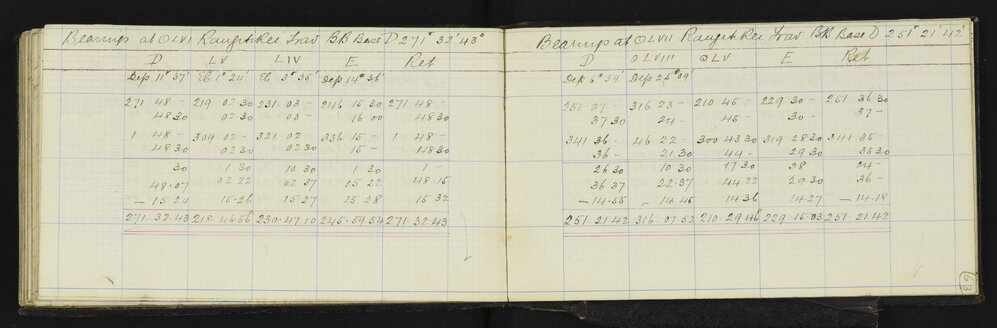 Bearings at OLVI Rangitikei Trav BB Base D 271° 32' 43"
D LV LIV E Ret
Dep 11° 37' El 1° 24' El 3° 35' Dep 14° 36'
271 48 - 219 02 30 231 03 - 246 15 30 271 48 -
48 30 02 30 03 - 16 00 48 30
1 48 - 309 02 - 321 02 - 336 15 - 1 48 -
48 30 02 30 02 30 15 - 48 30
30 1 30 10 30 1 30 1 -
48.07 02 22 02 37 15 22 48.15
- 15 24 15.26 15 27 15 28 15 32
271.32.43 218.46.56 230.47.10 245.59.54 271.32.43
Bearings at OLVII Rangitikei Trav BB Base D 251° 21' 42"
D OLVIII OLV E Ret
Dep 6° 54' Dep 25° 09'
251 37 - 316 23 - 210 45 - 229 30 - 251 36 30
37 30 24 - 45 - 30 - 37 -
341 36 - 46 22 - 300 43 30 319 28 30 341 35 -
36 - 21 30 44 - 29 30 35 30
26 30 10 30 17 30 58 24 -
36 37 22.37 44.22 29 30 36 -
- 14.55 14 45 14 36 14.27 - 14.18
251.21.42 316 07 52 210.29.46 229 15.03 251.21.42
63